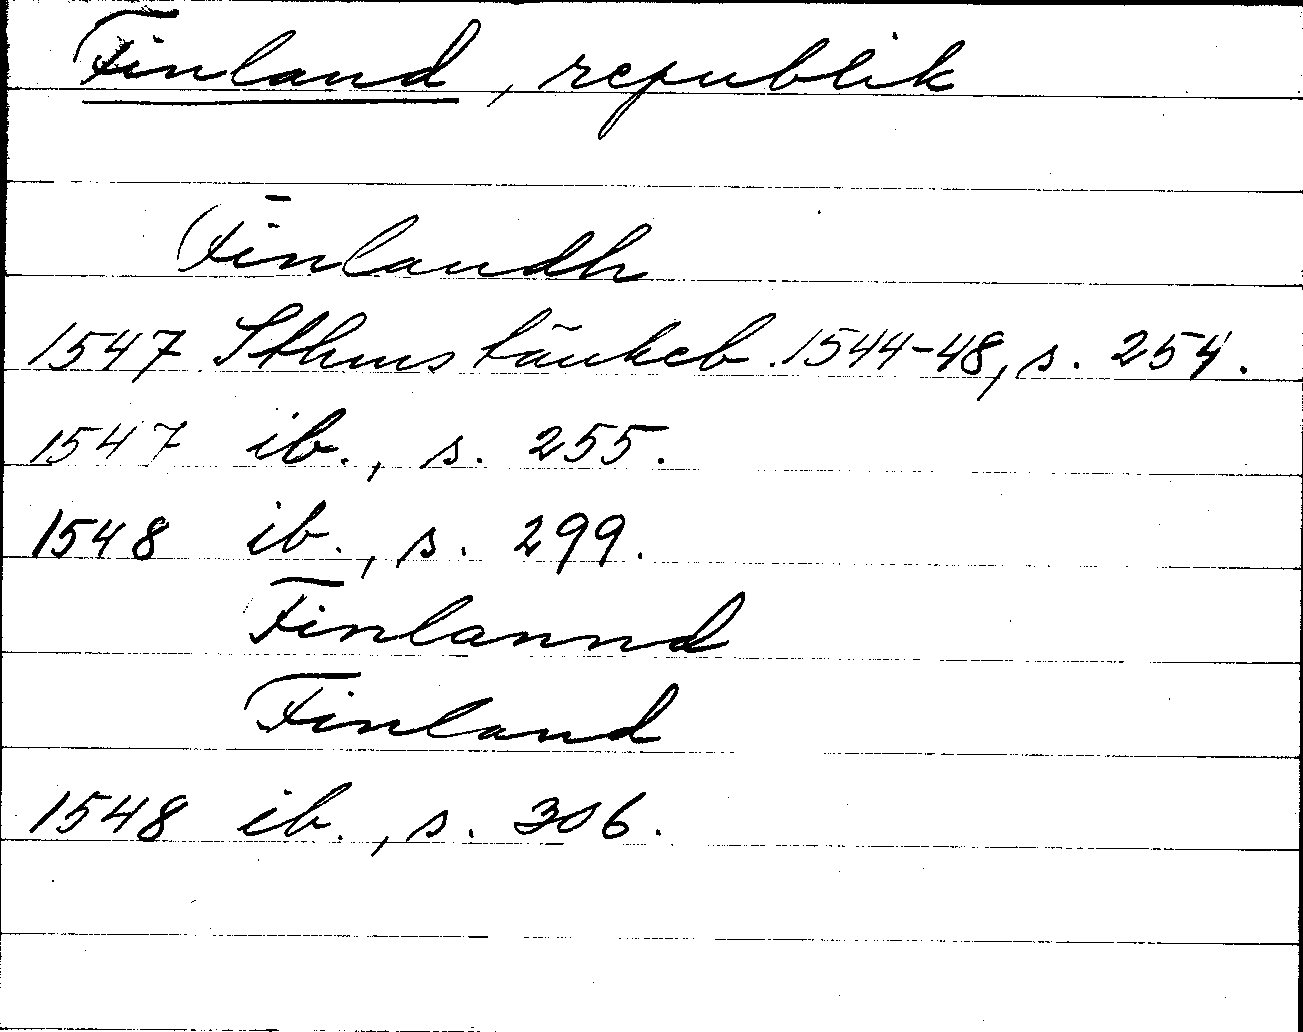 Finland, republik
Finlandh
1547 Sthms tänkeb. 1544-48, s. 254.
1547 ib., s. 255.
1548 ib., s. 299.
Finlannd
Finland
1548 ib., s. 306.